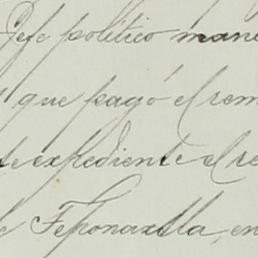 Jefe político mani
que pagó el rem
te expediente el re
de Teponaxtla, en